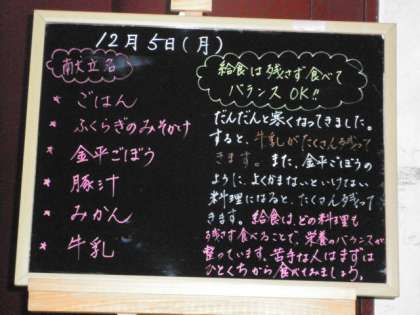 12月5日(月)
献立名
* ごはん
* ふくらぎのみそかけ
* 金平ごぼう
* 豚汁
* みかん
* 牛乳
給食は残さず食べて
バランスOK!!
だんだんと寒くなってきました。
すると、牛乳がたくさん残って
きます。また、金平ごぼうの
ように、よくかまないといけない
料理になると、たくさん残って
きます。給食は、どの料理も
残さず食べることで、栄養のバランスが
整っています。苦手な人はまずは
ひとくちから食べてみましょう。